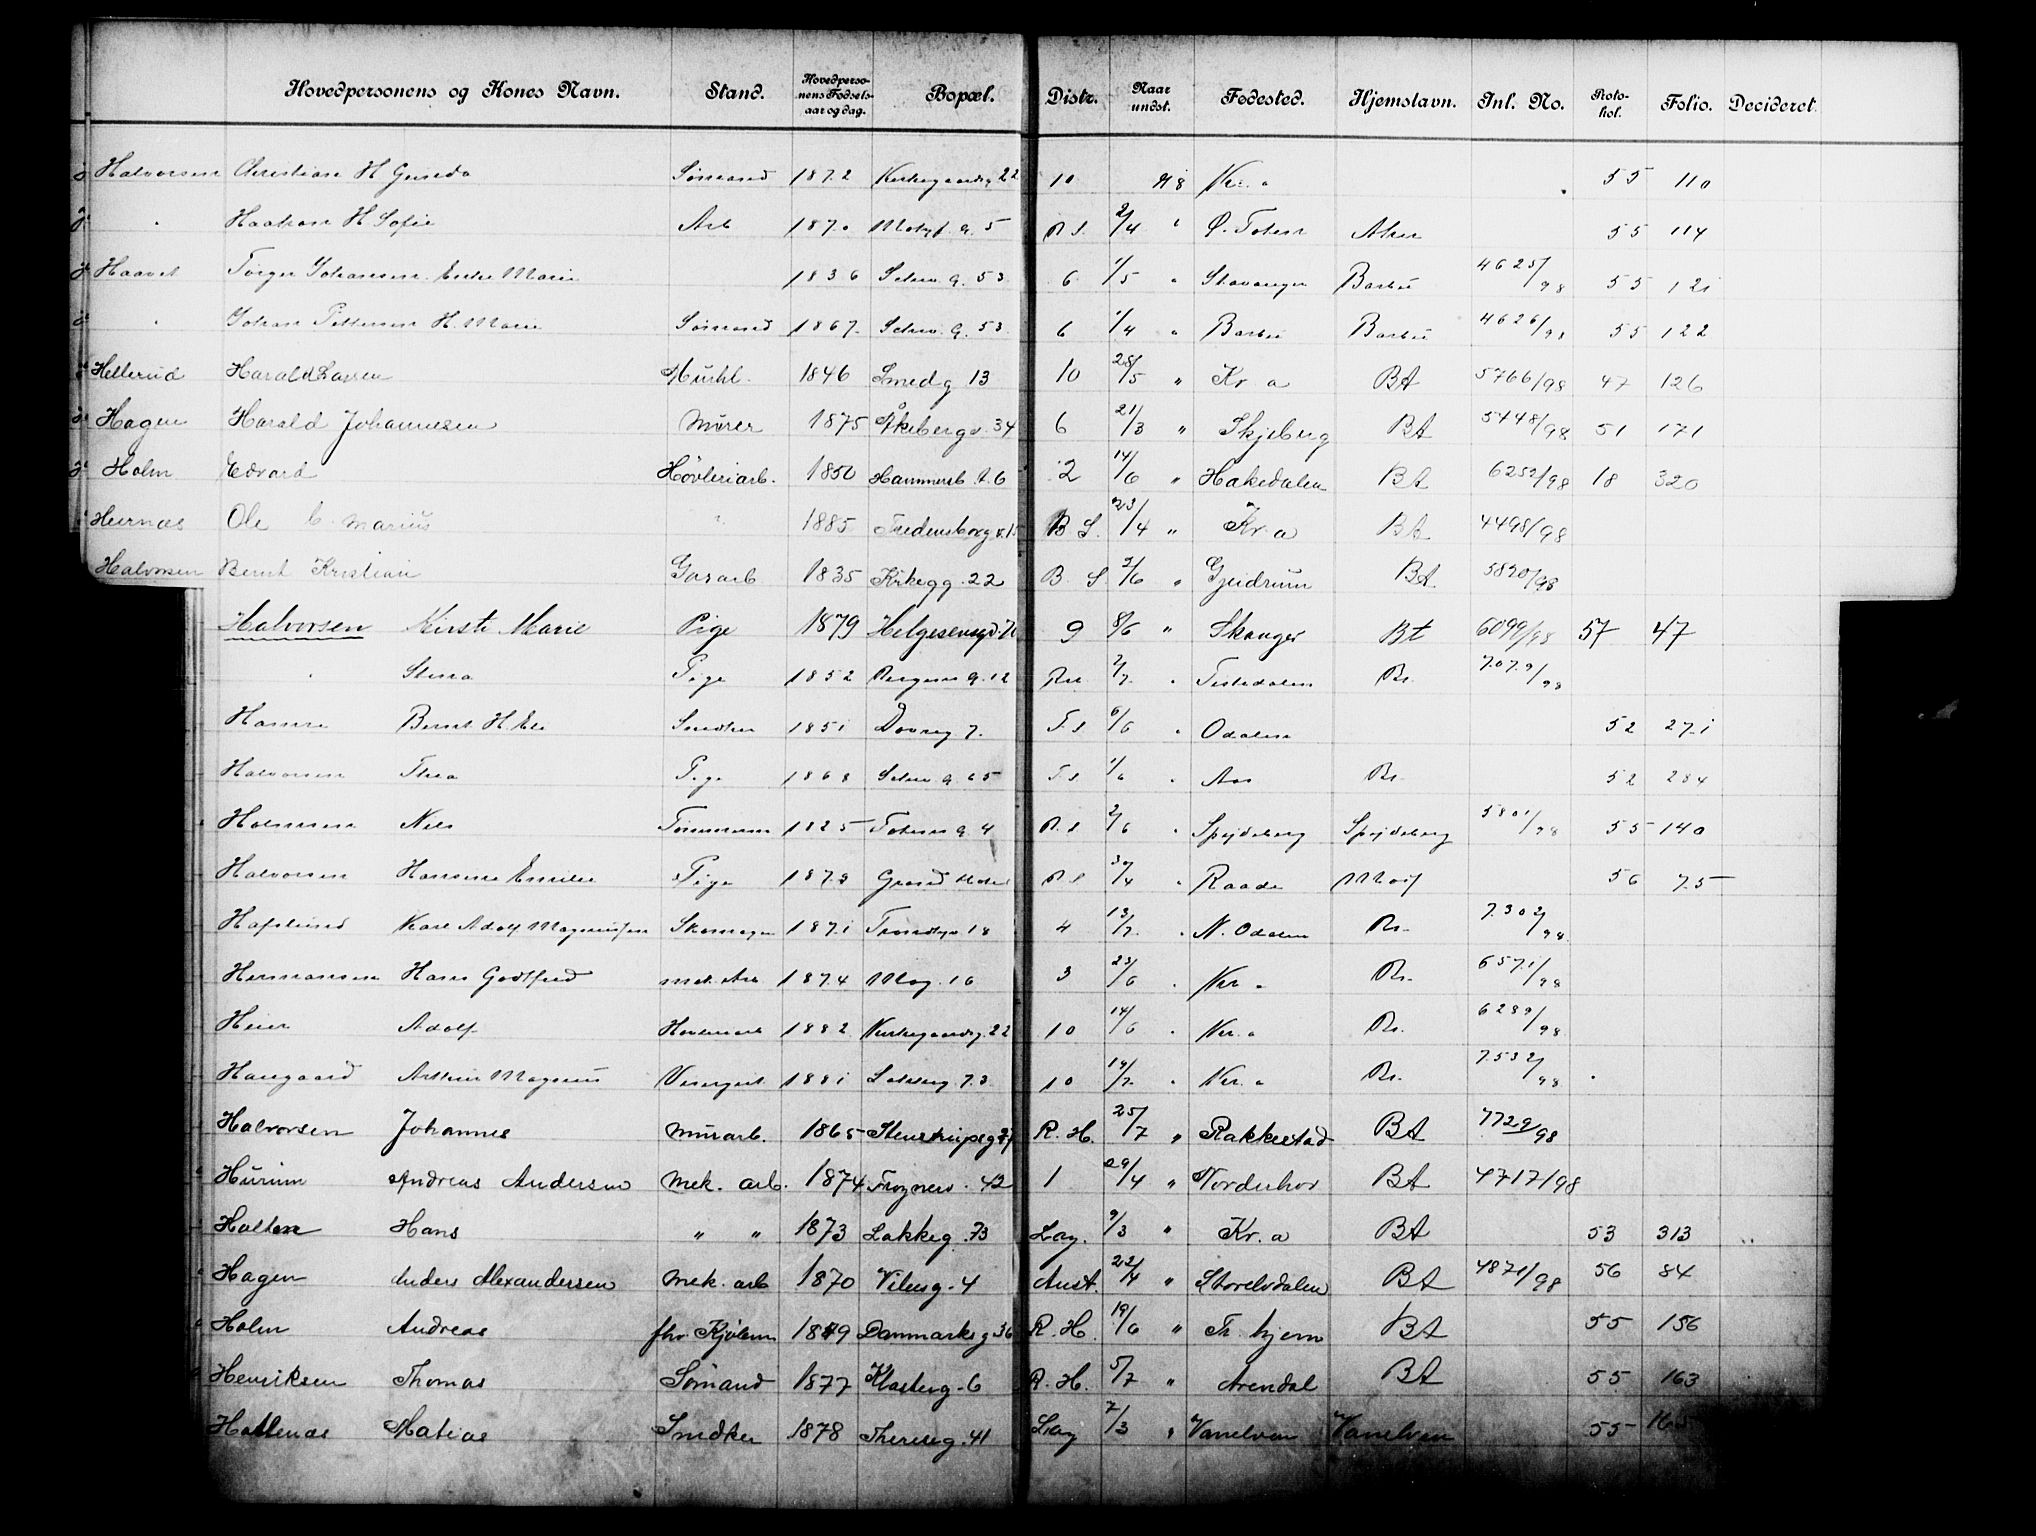 Hovedpersonens og Kones Navn. Stand. Hovedpersonens Fødselsaar og dag. Bopæl. Distr. Naar undst. Fødested. Hjemstavn. Inl. No. Protokol. Folio. Decideret.
Halvorsen Christian H Gunda Sømand 1872 Kirkegaardsg. 22 10 98 Kr. a 55 110
" Haakon H Sofie Arb 1870 5 R S. 2/4 " Ø. Toten Aker 55 114
Haavet Torger Johansen Marie 1836 Schw. g. 53 6 1/5 " Stavanger Barbu 4625/98 55 121
" Johan Pettersen H. Marie Sømand 1867 Schw. g. 53 6 1/4 " Barbu Barbu 4626/98 55 122
Hellerud Harald Larsen 1846 Smedg 13 10 28/5 " Kr a BA 5766/98 47 126
Hagen Harald Johannesen Murer 1875 Åkebergv. 34 6 21/3 " Skjeberg BA 5448/98 51 171
Holm Edvard Høvleriarb. 1850 Hammersb. g. 6 2 14/6 " Hakedalen BA 6252/98 18 320
Ole C. Marius " 1885 Fredensborgv. B S. 23/4 " Kr a BA 4498/98
Halvorsen Bernt Kristian Gasarb 1835 Kirkegg. 22 B. S. 2/6 " Gjeidrum BA. 5820/98
Halvorsen Kirsti Marie Pige 1879 9 8/6 " Skanger Bt 6099/98 57 47
" Stina Pige 1852 g. 12 2/7 " Tistedalen Br 7079/98
Bernt H. Eli Snedker 1851 Dovreg 7. T. S 6/6 " Odalen 52 271
Halvorsen Thea Pige 1868 Schw. g. 65 T. S 1/6 " Aas Br. 52 284
Nils Tømmerm 1825 Totens g. 4 R. S 2/6 " Spydeberg Spydeberg 5801/98 55 140
Halvorsen Hansine Emilie Pige 1873 Grand Hotel R S 30/4 " Raade 56 75
Hafslund Karl Adolf Magnussen Skomager 1871 18 4 13/7 " N. Odalen Br. 7302/98
Hermansen Hans Godtfred mek. Arb 1874 16 3 23/6 " Kr. a Br. 6571/98
Heier Adolf 1882 Kirkegaardsg. 22 10 14/6 " Kr. a Br. 6289/98
Haugaard Arthur Magnus Visergut 1881 73 10 14/7 " Kr. a Br. 7532/98
Halvorsen Johannes Murarb. 1865 Stenstrupsg R. H. 25/7 " Rakkestad BA 7729/98
Hurum Andreas Andersen Mek. arb. 1874 Frognerv. 42 1 29/4 " Norderhov BA 4717/98
Holten Hans " " 1873 Lakkeg. 73 Lay. 9/3 " Kr. a BA 53 313
Hagen Anders Alexandersen Mek. arb 1870 Vibesg. 4 Aust. 22/4 " Storelvdalen BA 4871/98 56 84
Holm Andreas fhv 1849 Danmarks g 36 R. H. 19/6 " Tr. hjem BA 55 156
Henriksen Thomas Sømand 1877 6 R. H. 5/7 " Arendal BA 55 163
Matias Snedker 1878 Thereseg. 41 Lay 7/3 " Vanelven Vanelven 55 165